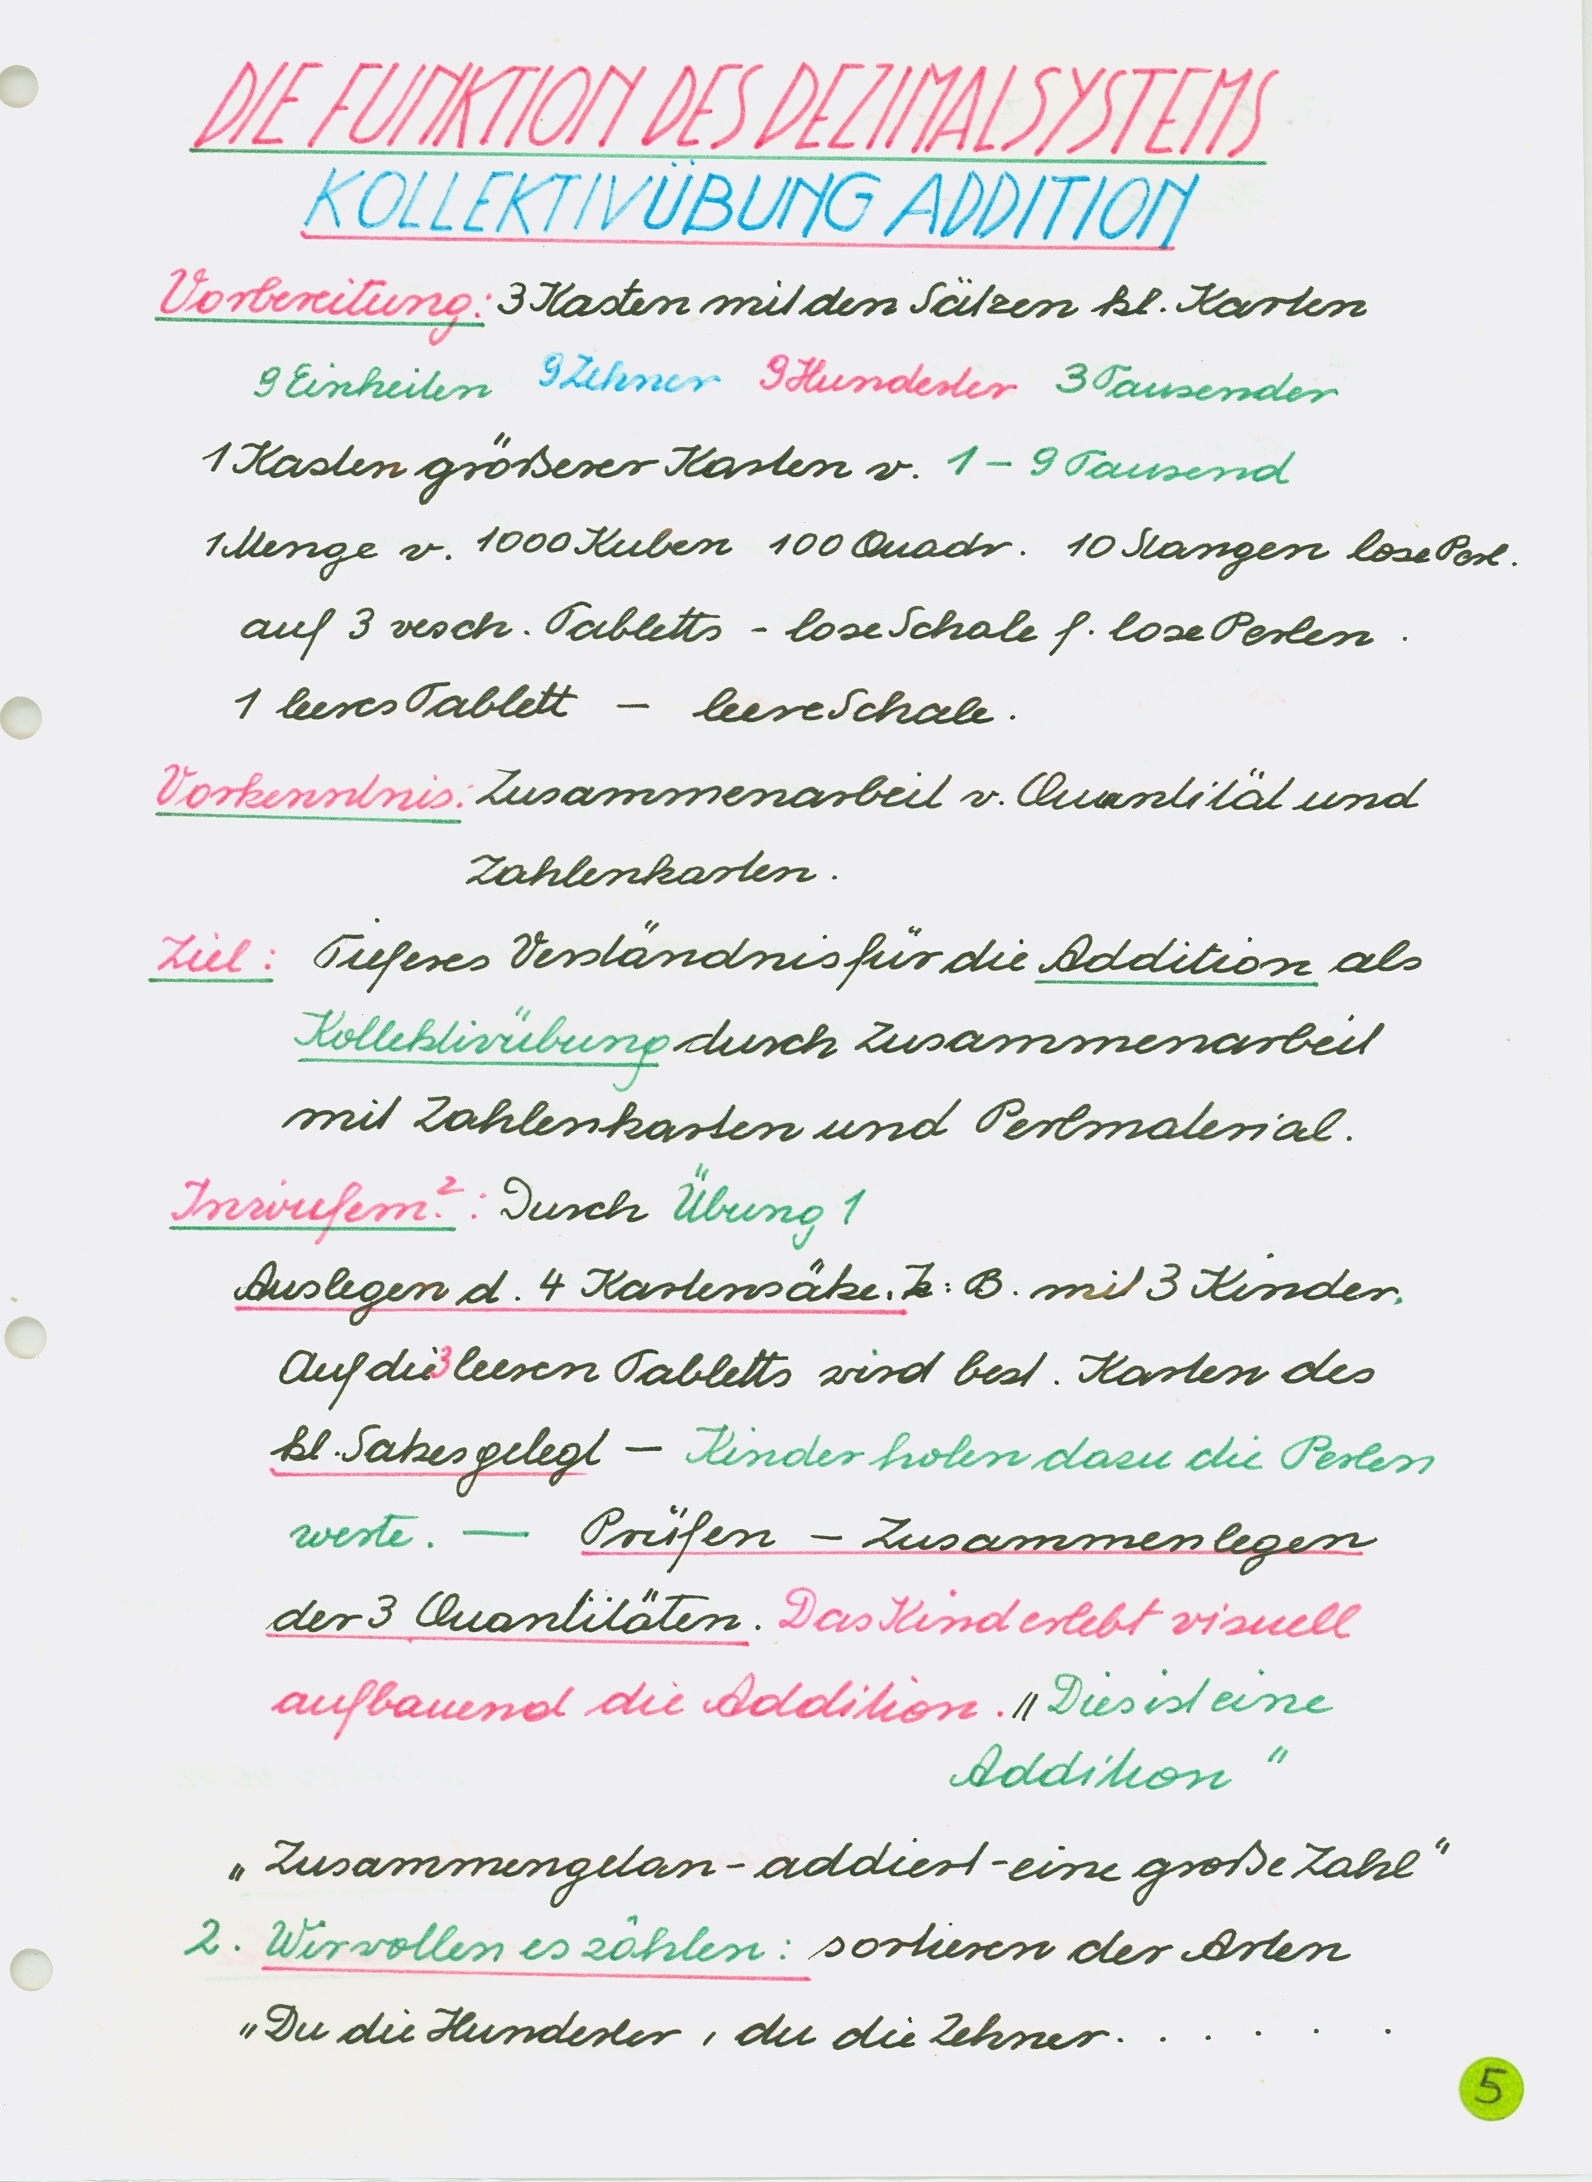 DIE FUNKTION DES DEZIMALSYSTEMS
KOLLEKTIVÜBUNG ADDITION
Vorbereitung: 3 Kasten mit den Sätzen kl. Karten
9 Einheiten 9 Zehner 9 Hunderter 3 Tausender
1 Kasten größerer Karten v. 1 – 9 Tausend
1 Menge v. 1000 Kuben 100 Quadr. 10 Stangen lose Perl.
auf 3 vesch. Tabletts - lose Schale f. lose Perlen.
1 leeres Tablett – leere Schale.
Vorkenntnis: Zusammenarbeit v. Quantität und
Zahlenkarten.
Ziel: Tieferes Verständnis für die Addition als
Kollektivübung durch Zusammenarbeit
mit Zahlenkarten und Perlmaterial.
2: Durch Übung 1
Auslegen d. 4 Kartensätze. Z: B. mit 3 Kinder.
Auf die 3 leeren Tabletts wird best. Karten des
kl. Satzes gelegt – Kinder holen dazu die Perlen
werte. — Prüfen – Zusammenlegen
der 3 Quantitäten. Das Kind erlebt visuell
aufbauend die Addition. „Dies ist eine
Addition“
„Zusammengetan - addiert - eine große Zahl“
2. Wir wollen es zählen: sortieren der Arten
„Du die Hunderter, du die Zehner. . . . . . .
5